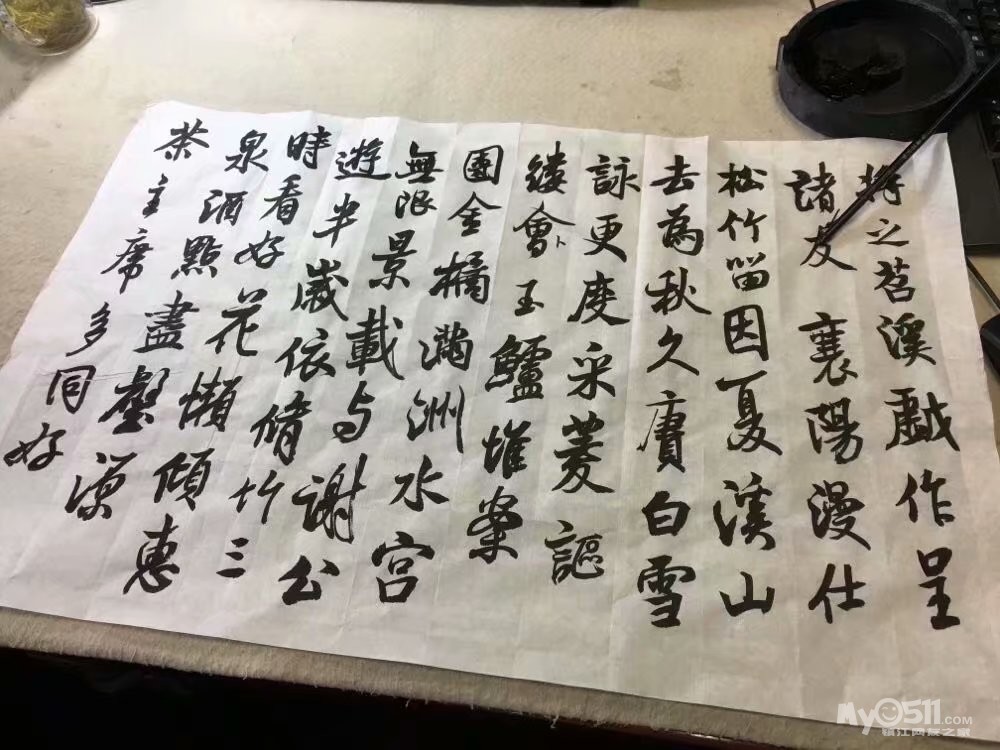 将之苕溪戲作呈
諸友 襄陽漫仕
松竹留因夏溪山
去為秋久賡白雪
詠更度采菱謳
縷會卜玉鱸堆案
團金橘滿洲水宮
無限景載与謝公
遊半歲依脩竹三
時看好花懶傾惠
泉酒點盡壑源
茶主席多同好
My0511.COM
镇江网友之家